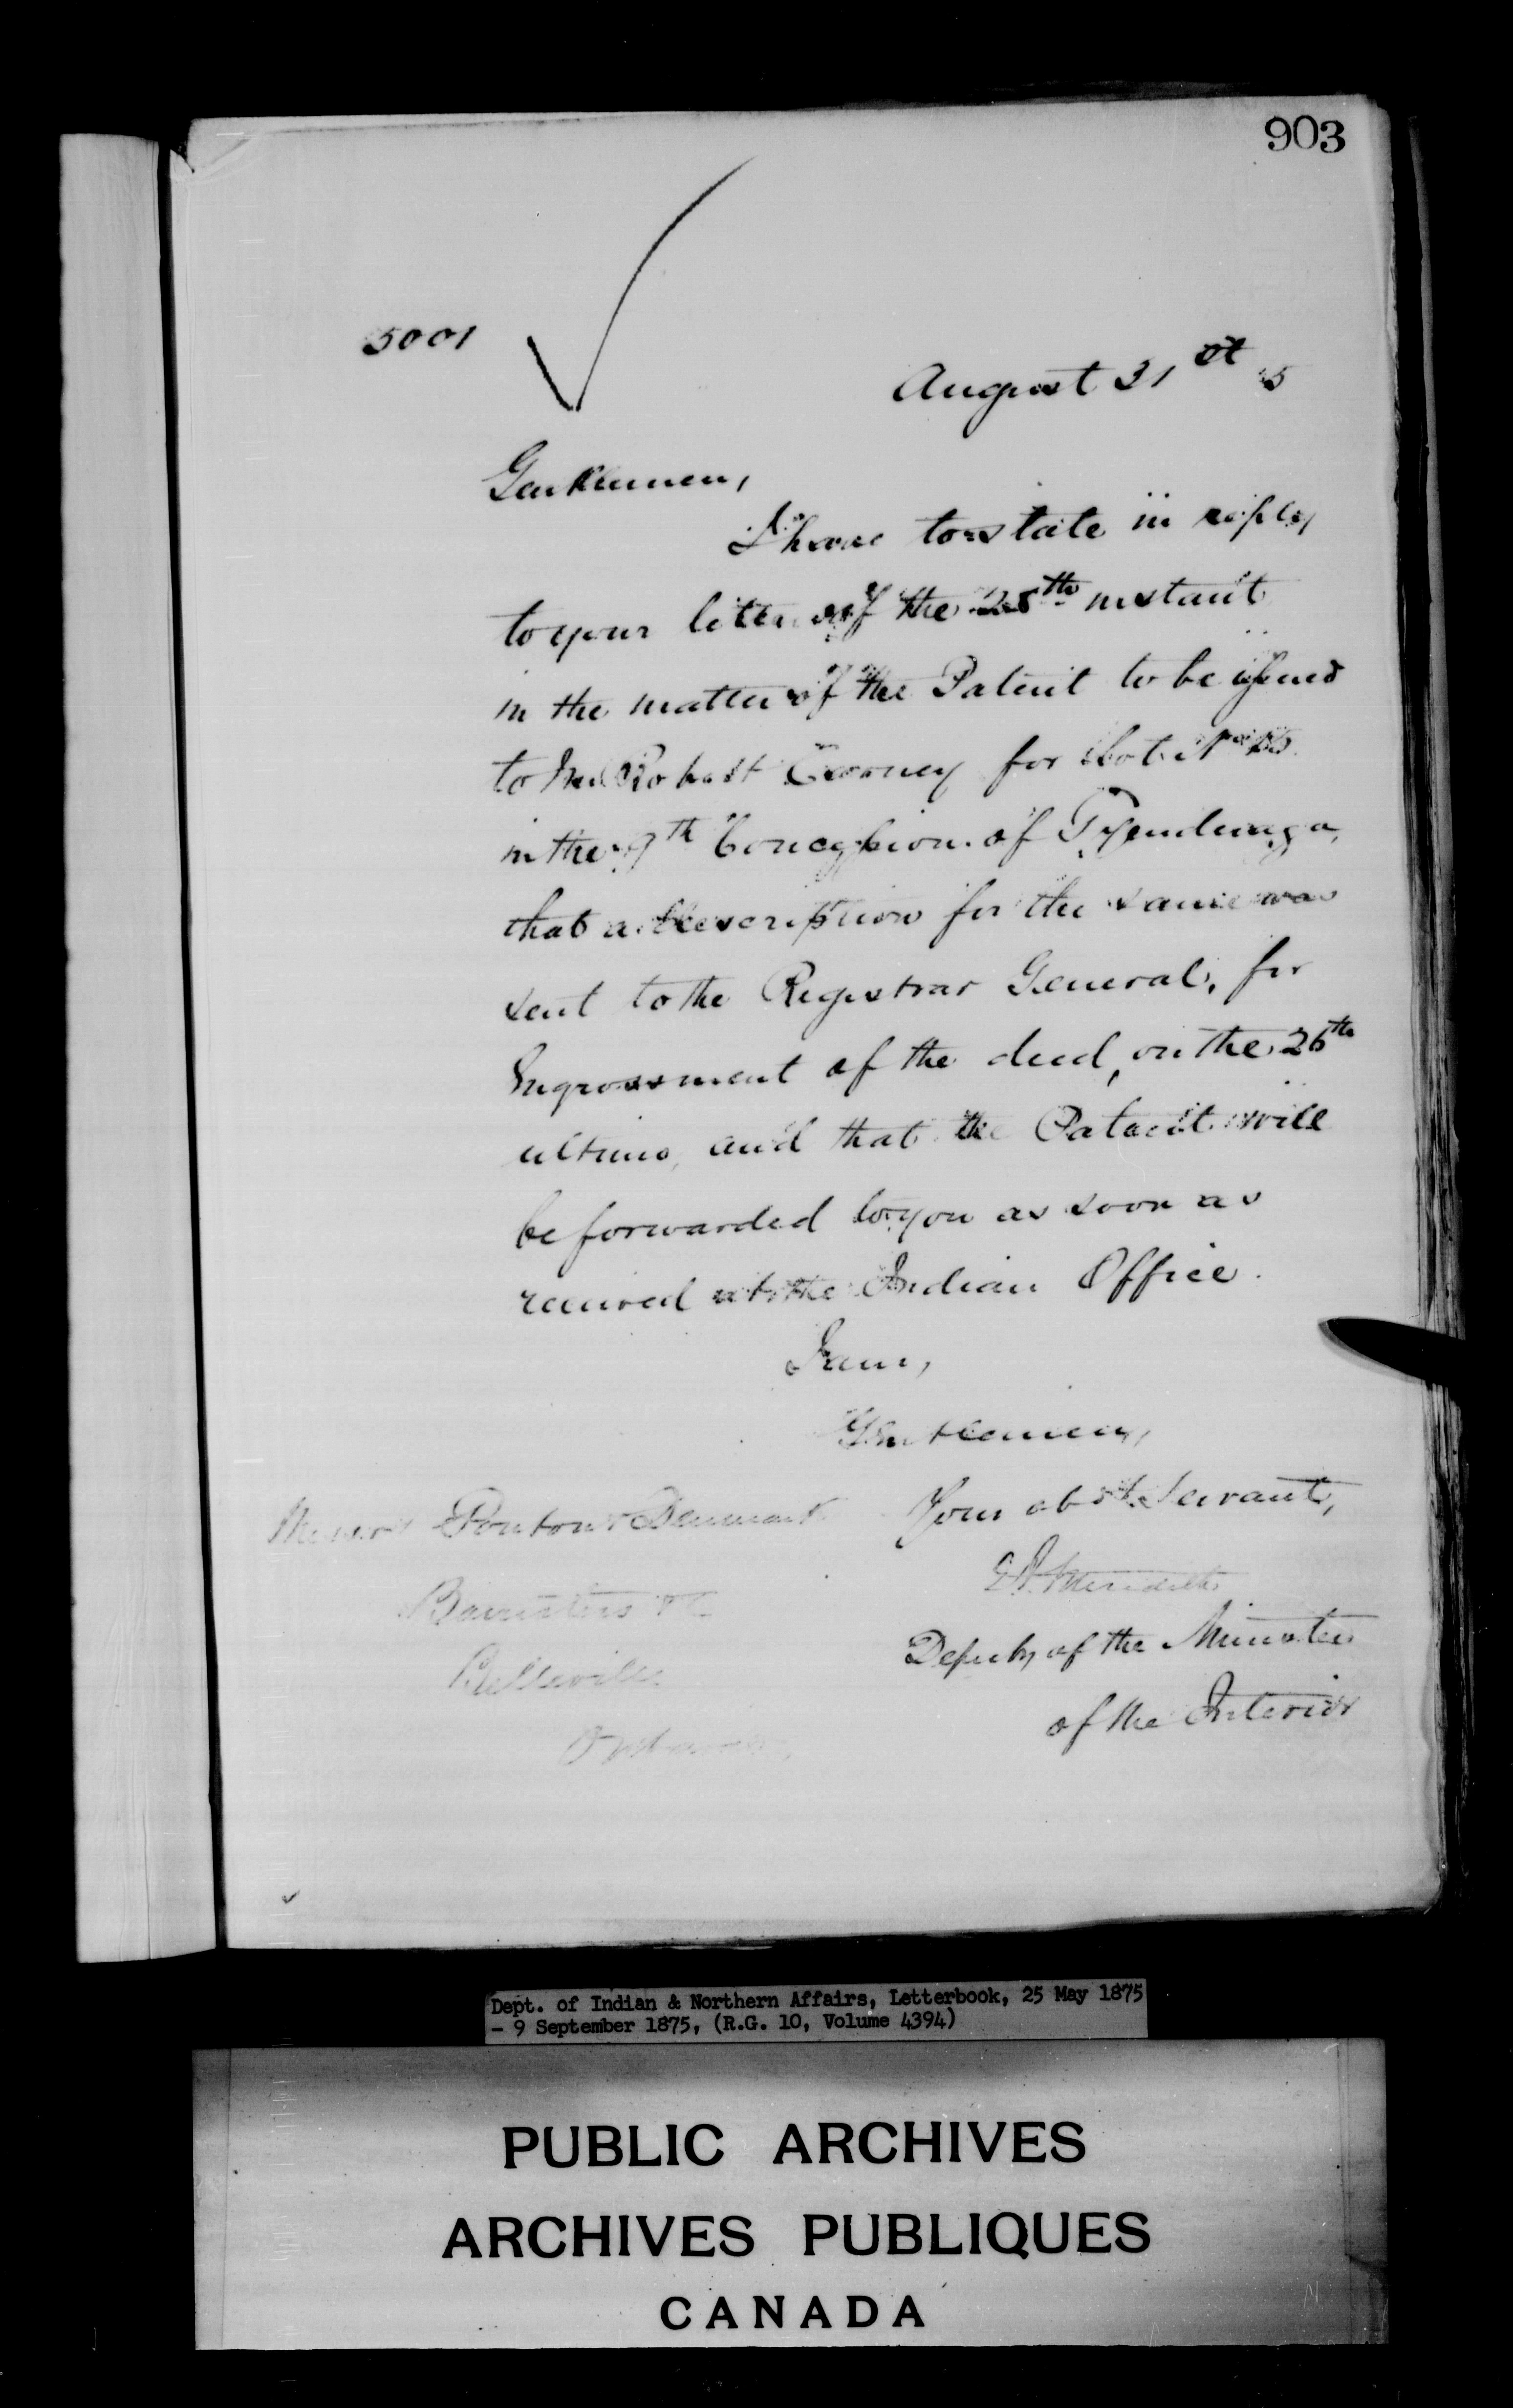 903
5001
August 31st 5
Gentlemen,
I have to state in reply
to your letter of the 28th instant
in the matter of the Patent to be issued
to Mr Robert for Lot No
in the 9th Concession of Tyendinaga,
that a description for the same was
sent to the Registrar General, for
Engrossment of the deed, on the 26th
ultimo, and that the Patent will
be forwarded to you as soon as
received at the Indian Office.
I am,
Gentlemen,
Your obdt Servant,
E A Meredith
Deputy of the Minister
of the Interior
Messrs Ponton & Denmark
Barristers &c
Belleville
Ontario
Dept. of Indian & Northern Affairs, Letterbook, 25 May 1875
- 9 September 1875, (R.G. 10, Volume 4394)
PUBLIC ARCHIVES
ARCHIVES PUBLIQUES
CANADA